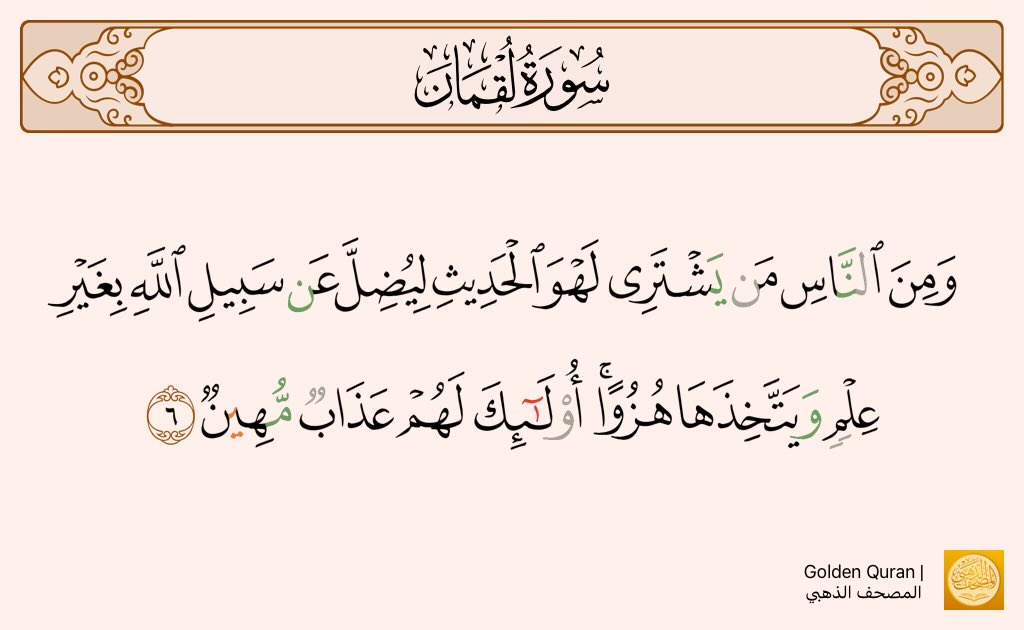 سُورَةُ لُقْمَان
وَمِنَ ٱلنَّاسِ مَن يَشْتَرِى لَهْوَ ٱلْحَدِيثِ لِيُضِلَّ عَن سَبِيلِ ٱللَّهِ بِغَيْرِ
عِلْمٍ وَيَتَّخِذَهَا هُزُوًا ۚ أُو۟لَـٰٓئِكَ لَهُمْ عَذَابٌ مُّهِينٌ ٦
Golden Quran |
المصحف الذهبي